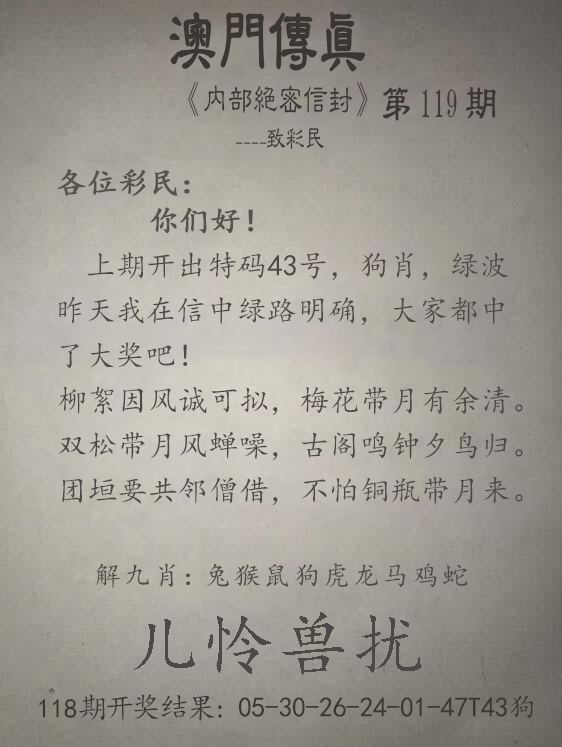 澳門傳眞
《内部絕密信封》第119期
----致彩民
各位彩民：
你们好！
上期开出特码43号，狗肖，绿波
昨天我在信中绿路明确，大家都中
了大奖吧！
柳絮因风诚可拟，梅花带月有余清。
双松带月风蝉噪，古阁鸣钟夕鸟归。
团垣要共邻僧借，不怕铜瓶带月来。
解九肖：兔猴鼠狗虎龙马鸡蛇
儿怜兽扰
118期开奖结果：05-30-26-24-01-47T43狗